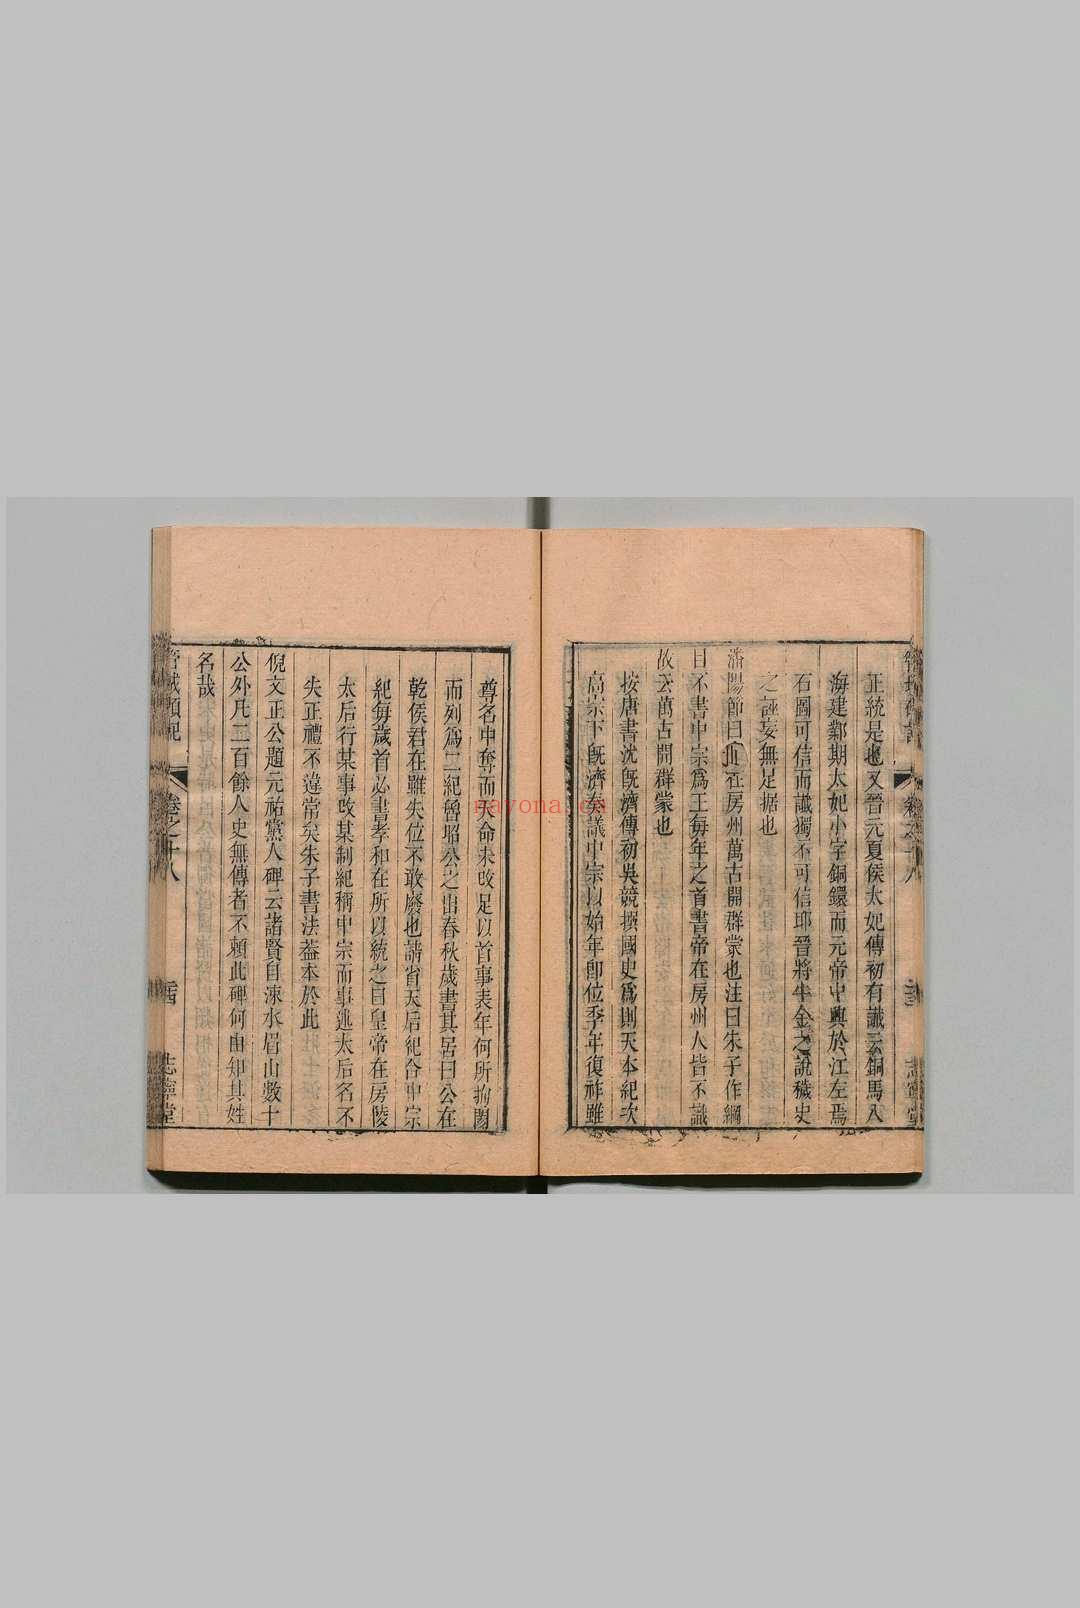 正統是也又晉元夏侯太妃傳初有讖云銅馬入
海建鄴期太妃小字銅鐶而元帝中興於江左焉
石圖可信而讖獨不可信耶晉將牛金之說穢史
之誣妄無足據也
潘陽節曰在房州萬古開羣蒙也注曰朱子作綱
目不書中宗爲王每年之首書帝在房州人皆不識
故云萬古開群蒙也
按唐書沈旣濟傳初吳兢撰國史爲則天本紀次
高宗下旣濟奏議中宗以始年卽位季年復祚雖
尊名中奪而天命未改足以首事表年何所拘閡
而列爲二紀魯昭公之出春秋歲書其居曰公在
乾侯君在雖失位不敢廢也請省天后紀合中宗
紀每歲首必書孝和在所以統之曰皇帝在房陵
太后行某事改某制紀稱中宗而事述太后名不
失正禮不違常矣朱子書法葢本於此
倪文正公題元祐黨人碑云諸賢自涑水眉山數十
公外凡二百餘人史無傳者不賴此碑何由知其姓
名哉
管城碩記
卷之十八
志寧堂
nayona.cn